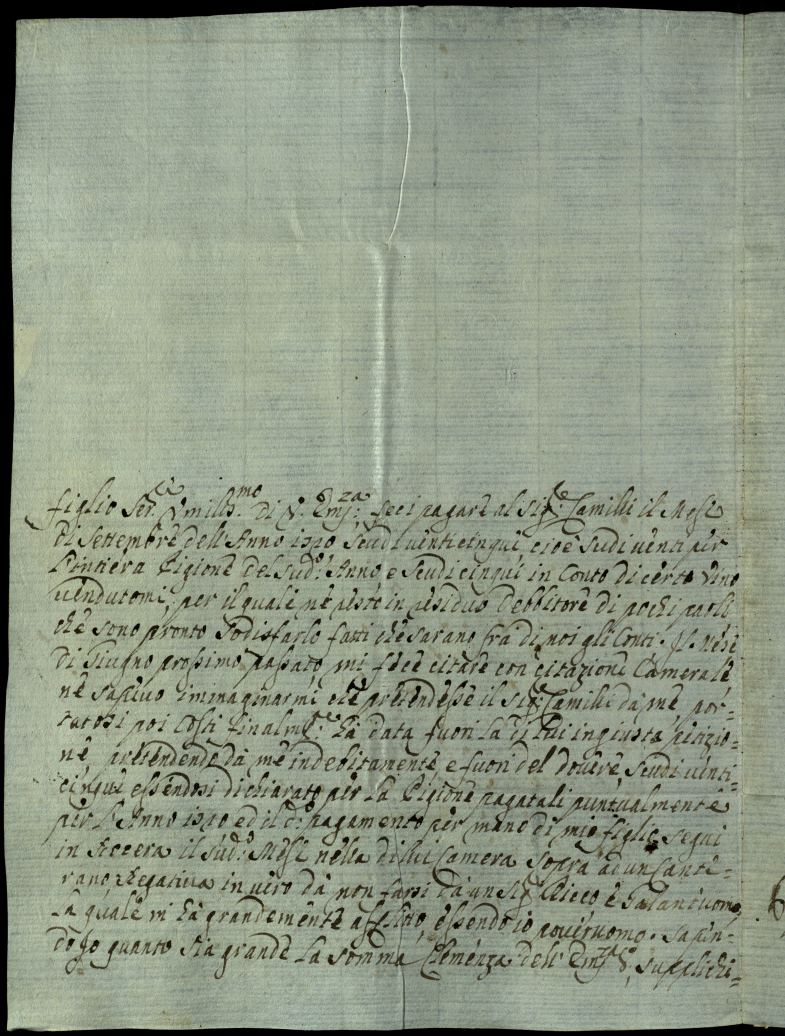 figlio Ser.e Umiliss.mo di V. Emj.za feci pagare al Sig.re Camilli il Mese
di Settembre dell'Anno 1720 Scudi uenticinque, cioè Sudi uenti per
l'intiera Pigione del Sud.o Anno e Scudi cinque in Conto di certo Vino
uendutomi, per il quale ne resto in residuo Debbitore di pochi paoli
che sono pronto Sodisfarlo fatti che sarano fra di noi gli Conti. Il Mese
di Giugno prossimo passato mi fece citare con citazione Camerale
ne sapeuo immaginarmi che pretendesse il Sig.re Camilli da me, por=
tatosi poi Costì finalm.te hà data fuori la di lui ingiusta petizio=
ne, pretendendo da me indebitamente e fuori del douere Scudi uinti=
cinque essendosi dichiarato per la Pigione pagatali puntualmente
per l'Anno 1720 ed il d.o pagamento per mano di mio figlio seguì
in Accera il Sud.o Mese nella di lui Camera Sopra ad un Cante=
rano. Negatiua in uero da non farsi da un Sig.re Ricco è Galantuomo,
la quale m'hà grandemente afflitto, essendo io pouer uomo. Sapen=
do Io quanto sia grande la somma Clemenza dell'Emj.za S., supplichi=